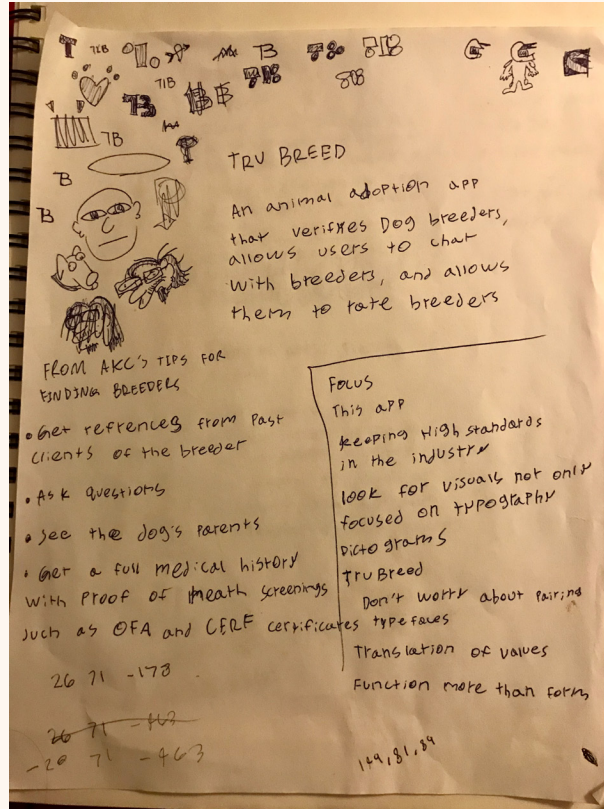 T 7IB B
7IB
TB
7B
B
B
TRU BREED
An animal adoption app
that verifies Dog breeders,
allows users to chat
with breeders, and allows
them to rate breeders
FROM AKC'S TIPS FOR
FINDING BREEDERS
• Get refrences from Past
clients of the breeder
• Ask questions
• See the dog's parents
• Get a full medical history
with Proof of Heath screenings
such as OFA and CERF certificates
26 71 -178
26 71 -463
-20 71 -463
Focus
This app
keeping High standards
in the industry
look for visuals not only
focused on typography
Pictograms
Tru Breed
Don't worry about Pairing
type faces
Translation of values
Function more than form
149,81,89